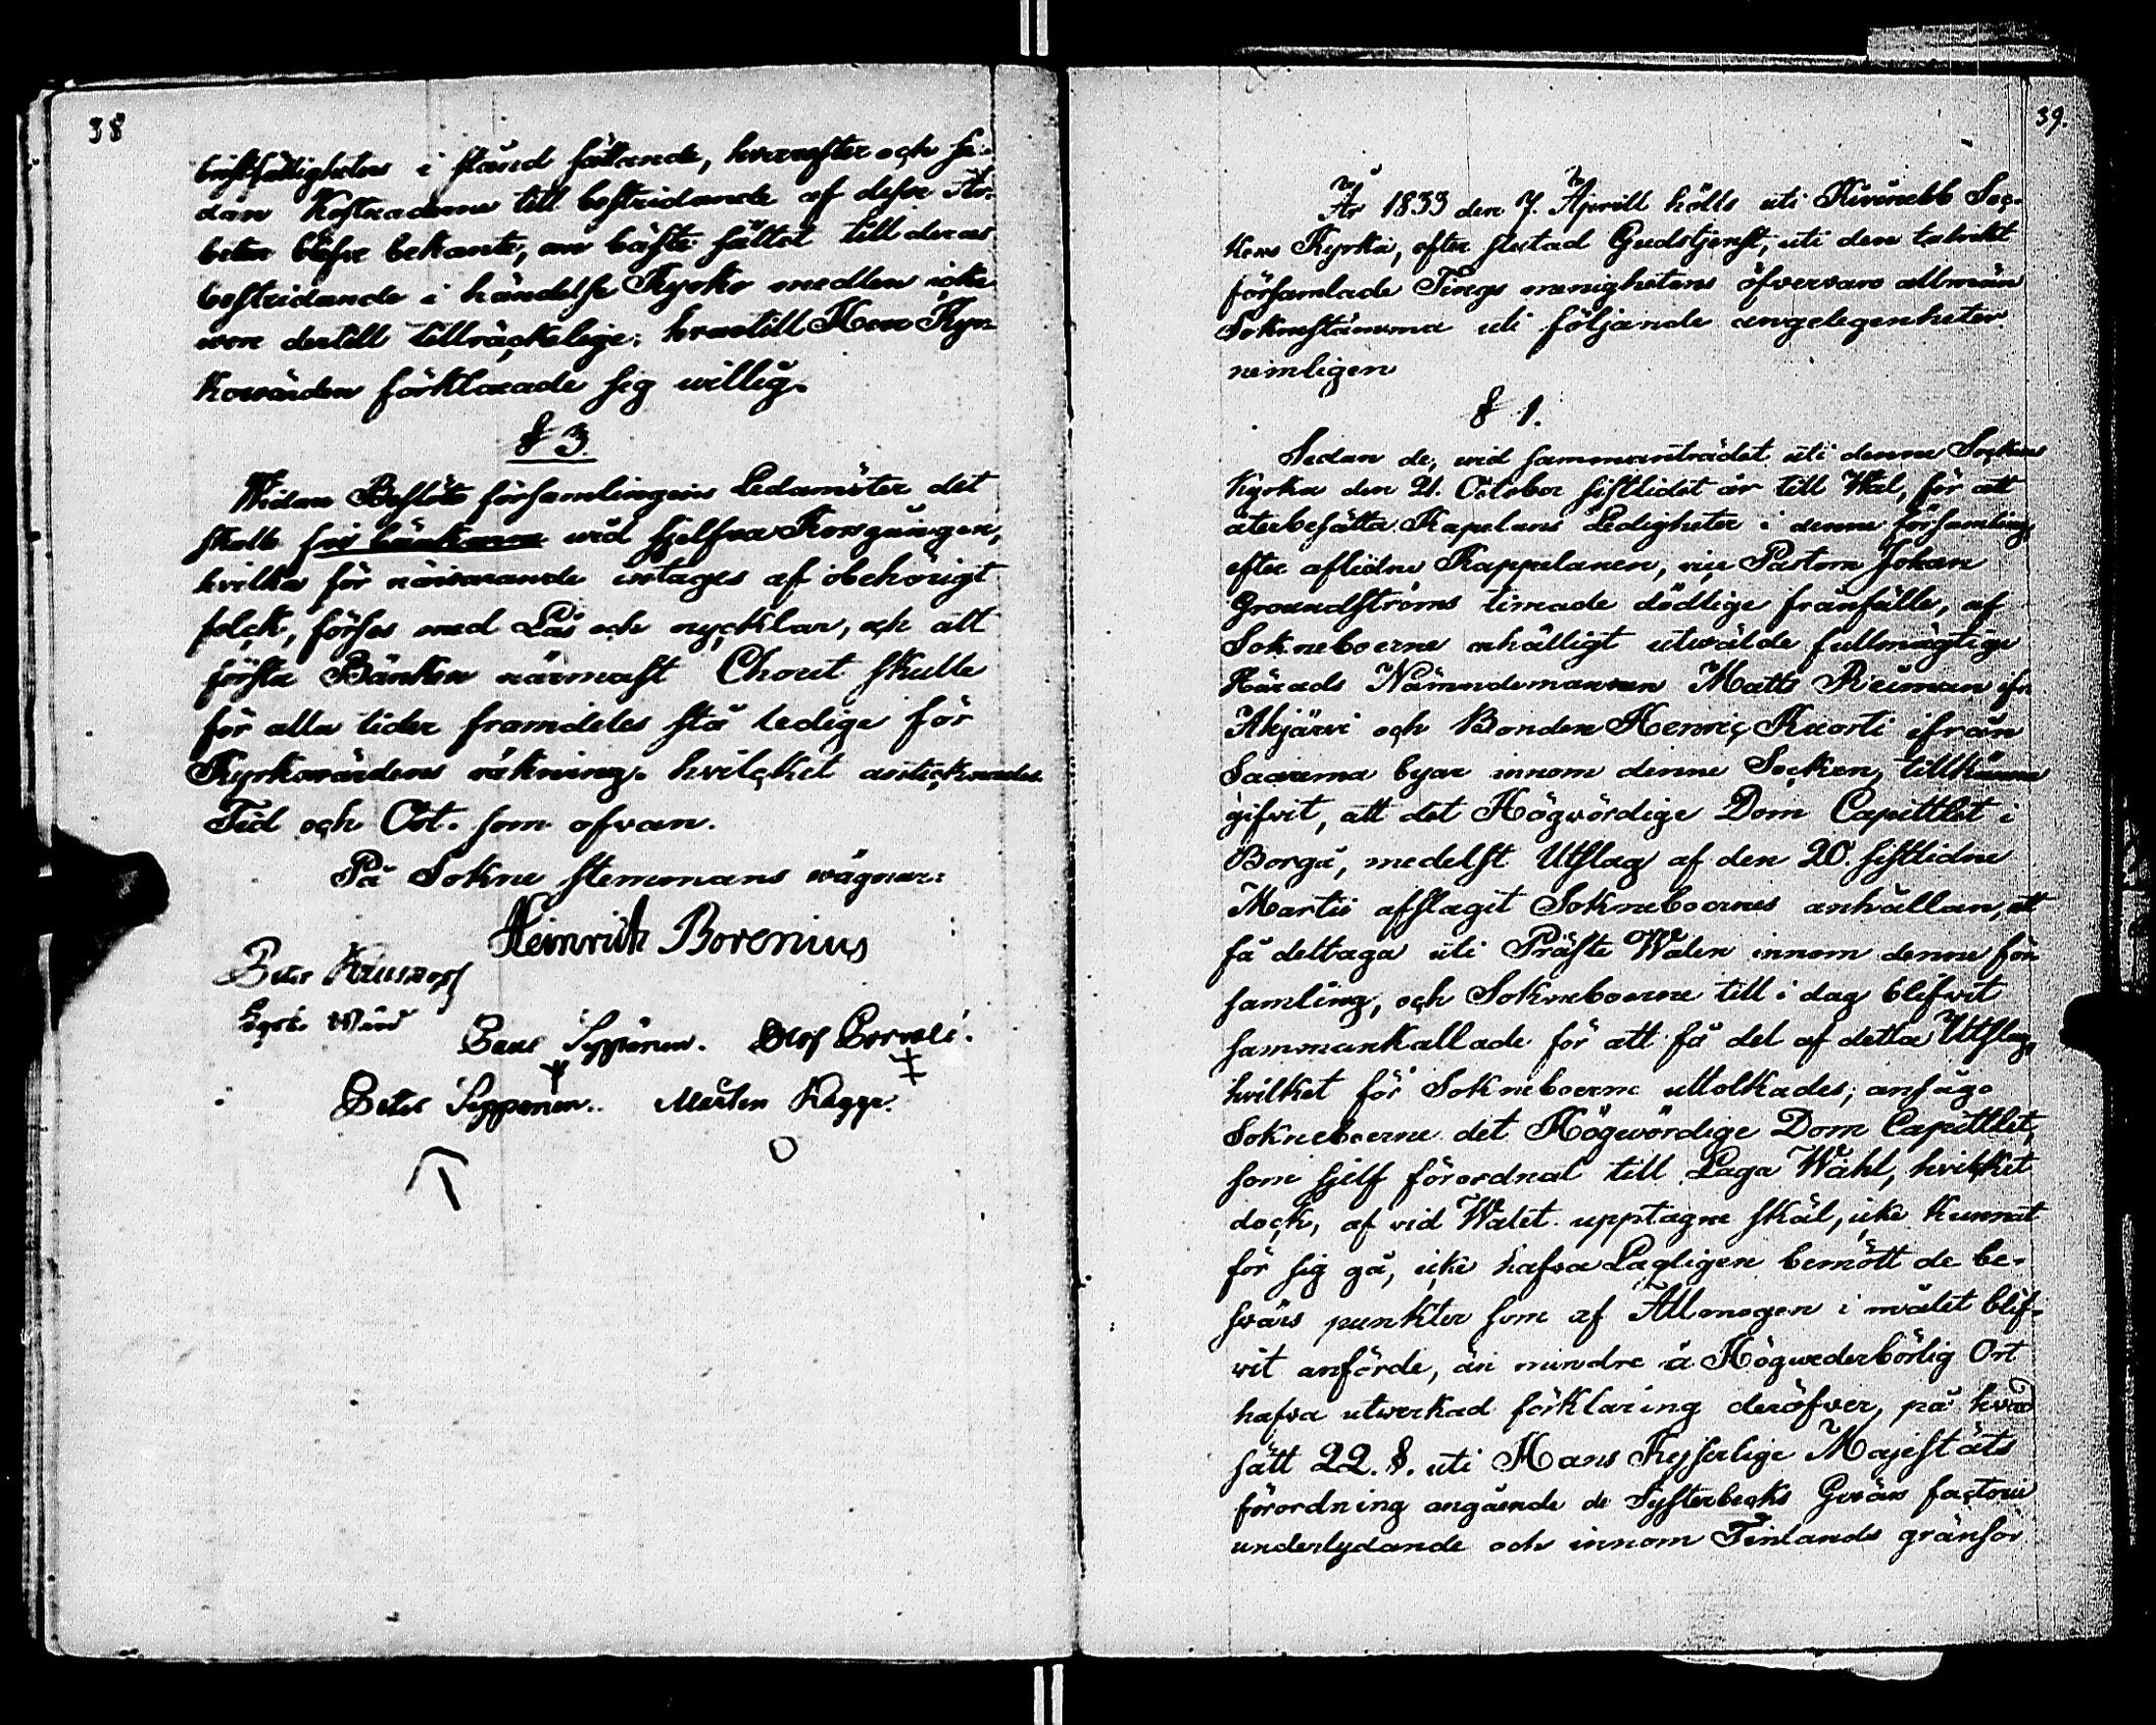 38
bristfälligheten i stånd sättande, hvarefter och se-
dan Kostnaderne till bestridande af desse Ar-
beten blefve bekante, om bäste sättet till deras
bestridande i händelse Kyrko medlen icke
wore dertill tillräckelige; hvartill Herr Kyr-
kowärden förklarade sig willig.
§ 3.
Widare Beslöto församlingens Ledamöter det
skulle bänkarne wid sjelfva Korsgången,
hvilka för närwarande intages af obehörigt
folck, förses med Lås och nycklar, och att
första Bänken närmast Choret skulle
för alla tider framdeles stå ledige för
Kyrkowärdens räkning. hvilcket antecknades.
Tid och Ort. som ofvan.
På Sokne stemmans wägnar:
Heinrich Borenius
Peter
Kyrk. Wärd
Paul Sepponen. Olof
Peter Sepponen. Mårten
39.
År 1833 den 7. Aprill hölls uti Kivinebb Soc-
kens Kyrka, efter slutad Gudstjenst, uti den talrikt
församlade Tings menighetens öfvervaro allmän
Soknestämma uti följande angelegenheter.
nemligen
§ 1.
Sedan de, wid sammanträdet uti denne Sockens
Kyrka den 21. October sistlidet år till Wal, för att
återbesätta Kapelans Ledigheter i denne församling,
efter aflidne Kappelanen, vice Pastorn Johan
Groundströms timade dödlige frånfälle, af
Sokneboerne enhälligt utwälde fullmägtige
Härads Nämndemannen Matts Reiman ifr.
Akjärvi och Bonden Henric Kuorti ifrån
Saarema byar innom denne Socken, tillkänna
gifvit, att det Högwördige Dom Capittlet i
Borgå, medelst Utslag af den 20. sistlidne
Martii afslagit Sokneboernes anhållan, att
få deltaga uti Präste Walen innom denne för-
samling, och Sokneboerne till i dag blifvit
sammankallade för att få del af detta Utslag,
hvilket för Sokneboerne uttolkades; ansågo
Sokneboerne det Högwördige Dom Capittlet,
som sjelf förordnat till Laga Wahl, hvilcket
dock, af vid Walet upptagne skäl, icke kunnat
för sig gå, icke hafva Lagligen bemött de be-
svärs punkter som af Allmogen i målet blif-
vit anförde, än mindre å Högwederbörlig Ort
hafva utwerkad förklaring deröfver, på hvad
sätt 22. §. uti Hans Kejserlige Majestäts
förordning angående de Systerbecks Gevärs factori
underlydande och innom Finlands gränsor